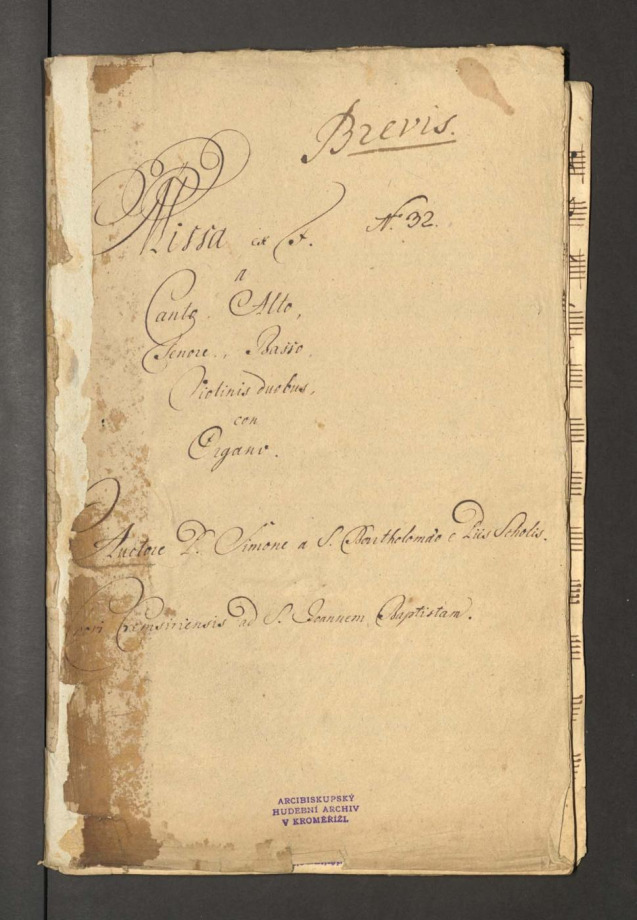 Brevis.
Missa ex F. N. 32.
a
Canto. Alto,
Tenore, Basso,
Violinis duobus,
con
Organo.
Auctore P. Simone a S. Bartholomæo e Piis Scholis.
Chori Cremsiriensis ad S. Joannem Baptistam.
ARCIBISKUPSKÝ
HUDEBNÍ ARCHIV
V KROMĚŘÍŽI.